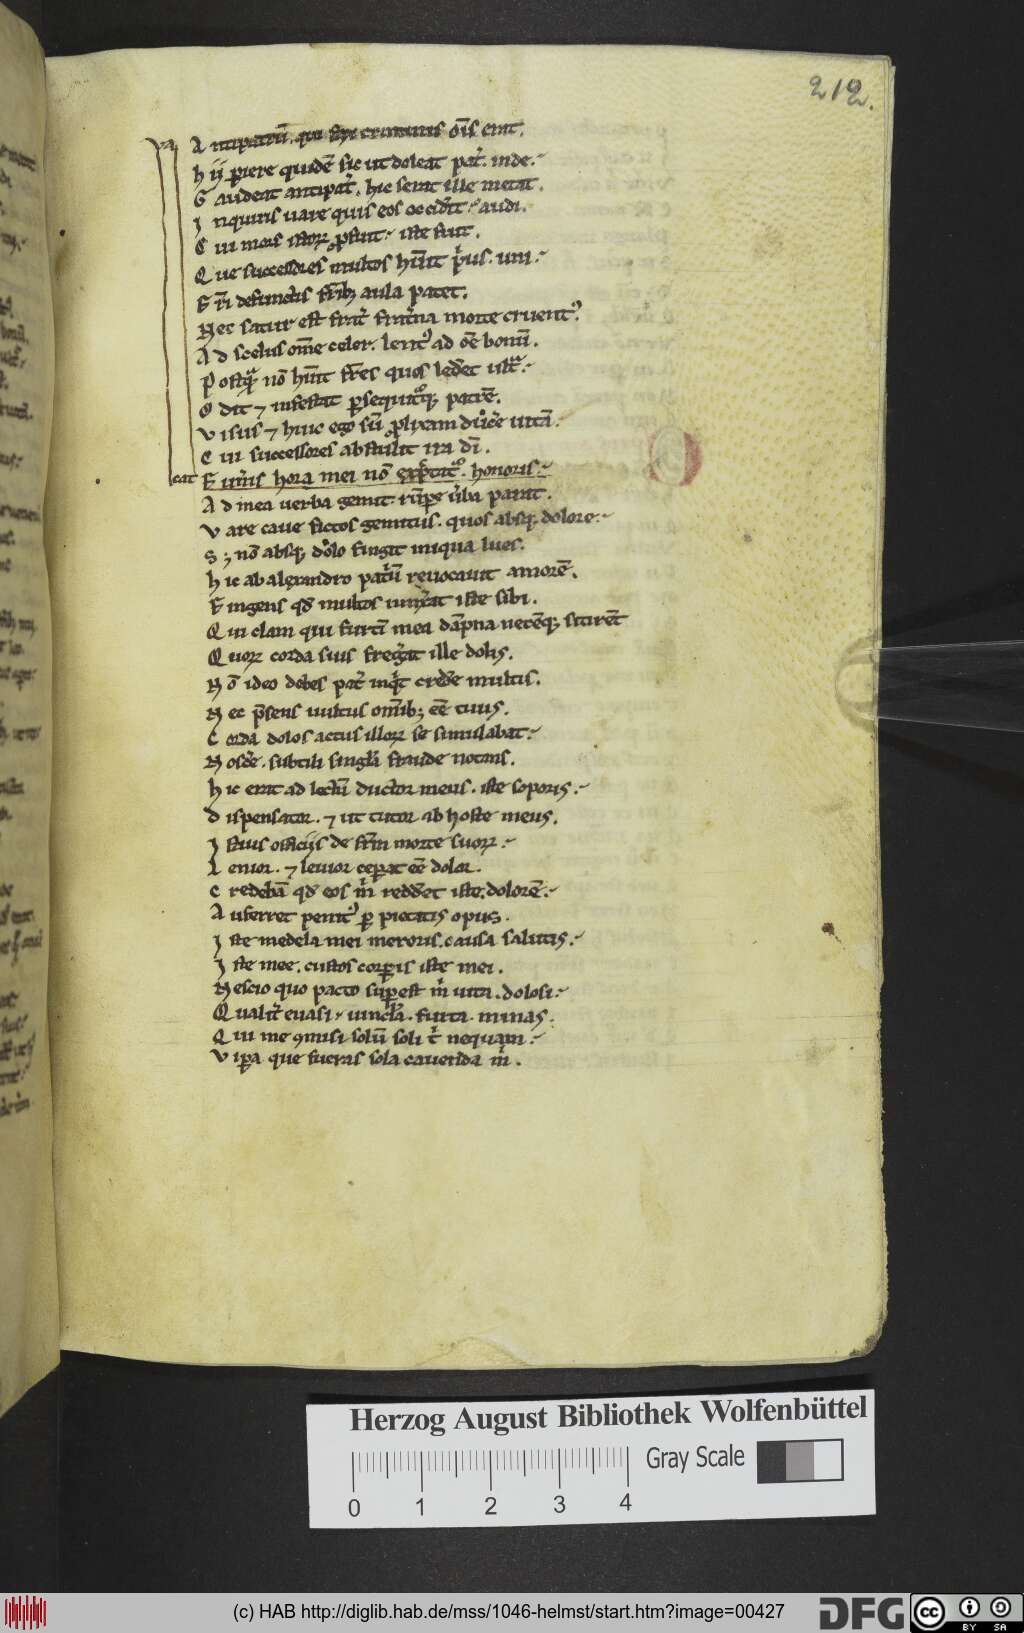 212.
va
A ntipatrū. qui sibi criminis oīs erat.
h ij piere quidē sic ut doleat pat̄. inde.
G audeat antipat̄. hic serat ille metat.
I nquiris uare quis eos occidit. audi.
C ui mors istoꝝ ꝓfuit. iste fuit.
Q ue successores multos hūit pius. uni.
F ri defunctis frībꝫ aula patet.
N ec satur est frat̄ frat̄na morte cruentꝰ.
A d scelus om̄e celer. lentꝰ ad oē bonū.
P ostq̄ nō hūit fr̄es quos led̄et ult̄.
O dit ⁊ infestat ꝑsequitꝰqꝫ patrē.
V isus ⁊ huic ego sū ꝓlixam ducē uitā.
C ui successores abstulit ira dī.
cat F un̄is hora mei nō exp̄ctatꝰ. honoris.
A d mea uerba gemit. rūpe ūba parat.
V are caue fictos gemitus. quos absqꝫ dolore.
S ꝫ nō absqꝫ dolo fingit iniqua lues.
h ic ab alexandro pat̄ū reuocauit amorē.
F ingens qd̄ multos iunx̄at iste sibi.
Q ui clam qui furtī mea dāpna necēqꝫ sitirēt
Q uoꝝ corda suis freḡat ille dolis.
N ō ideo debes pat̄ inq̄t cred̄e multis.
N ec p̄sens uultus om̄ibꝫ eē tuus.
C orda dolos actus illoꝝ se simulabat.
N osc̄e. subtili singl̄a fraude notans.
h ic erat ad lectū ductor meus. iste soporis.
D ispensator. ⁊ ut tutor ab hoste meus.
I stius officijs de fr̄m morte suoꝝ.
L enior. ⁊ leuior cep̄at eē dolor.
C redebā qd̄ eos m̄ redd̄et iste. dolorē.
A uferret penitꝰ ꝑ pietatis opus.
I ste medela mei meroris. causa salutis.
I ste mee. custos corꝑis iste mei.
N escio quo pacto suꝑest m̄ uita. dolosi.
Qualit̄ euasi. uincl̄a. furta. minas.
Q ui me ꝯmisi solū soli t̄ nequam.
V iꝑa que fueras sola cauenda m̄.
Herzog August Bibliothek Wolfenbüttel
Gray Scale
0 1 2 3 4
(c) HAB http://diglib.hab.de/mss/1046-helmst/start.htm?image=00427
DFG
cc BY SA